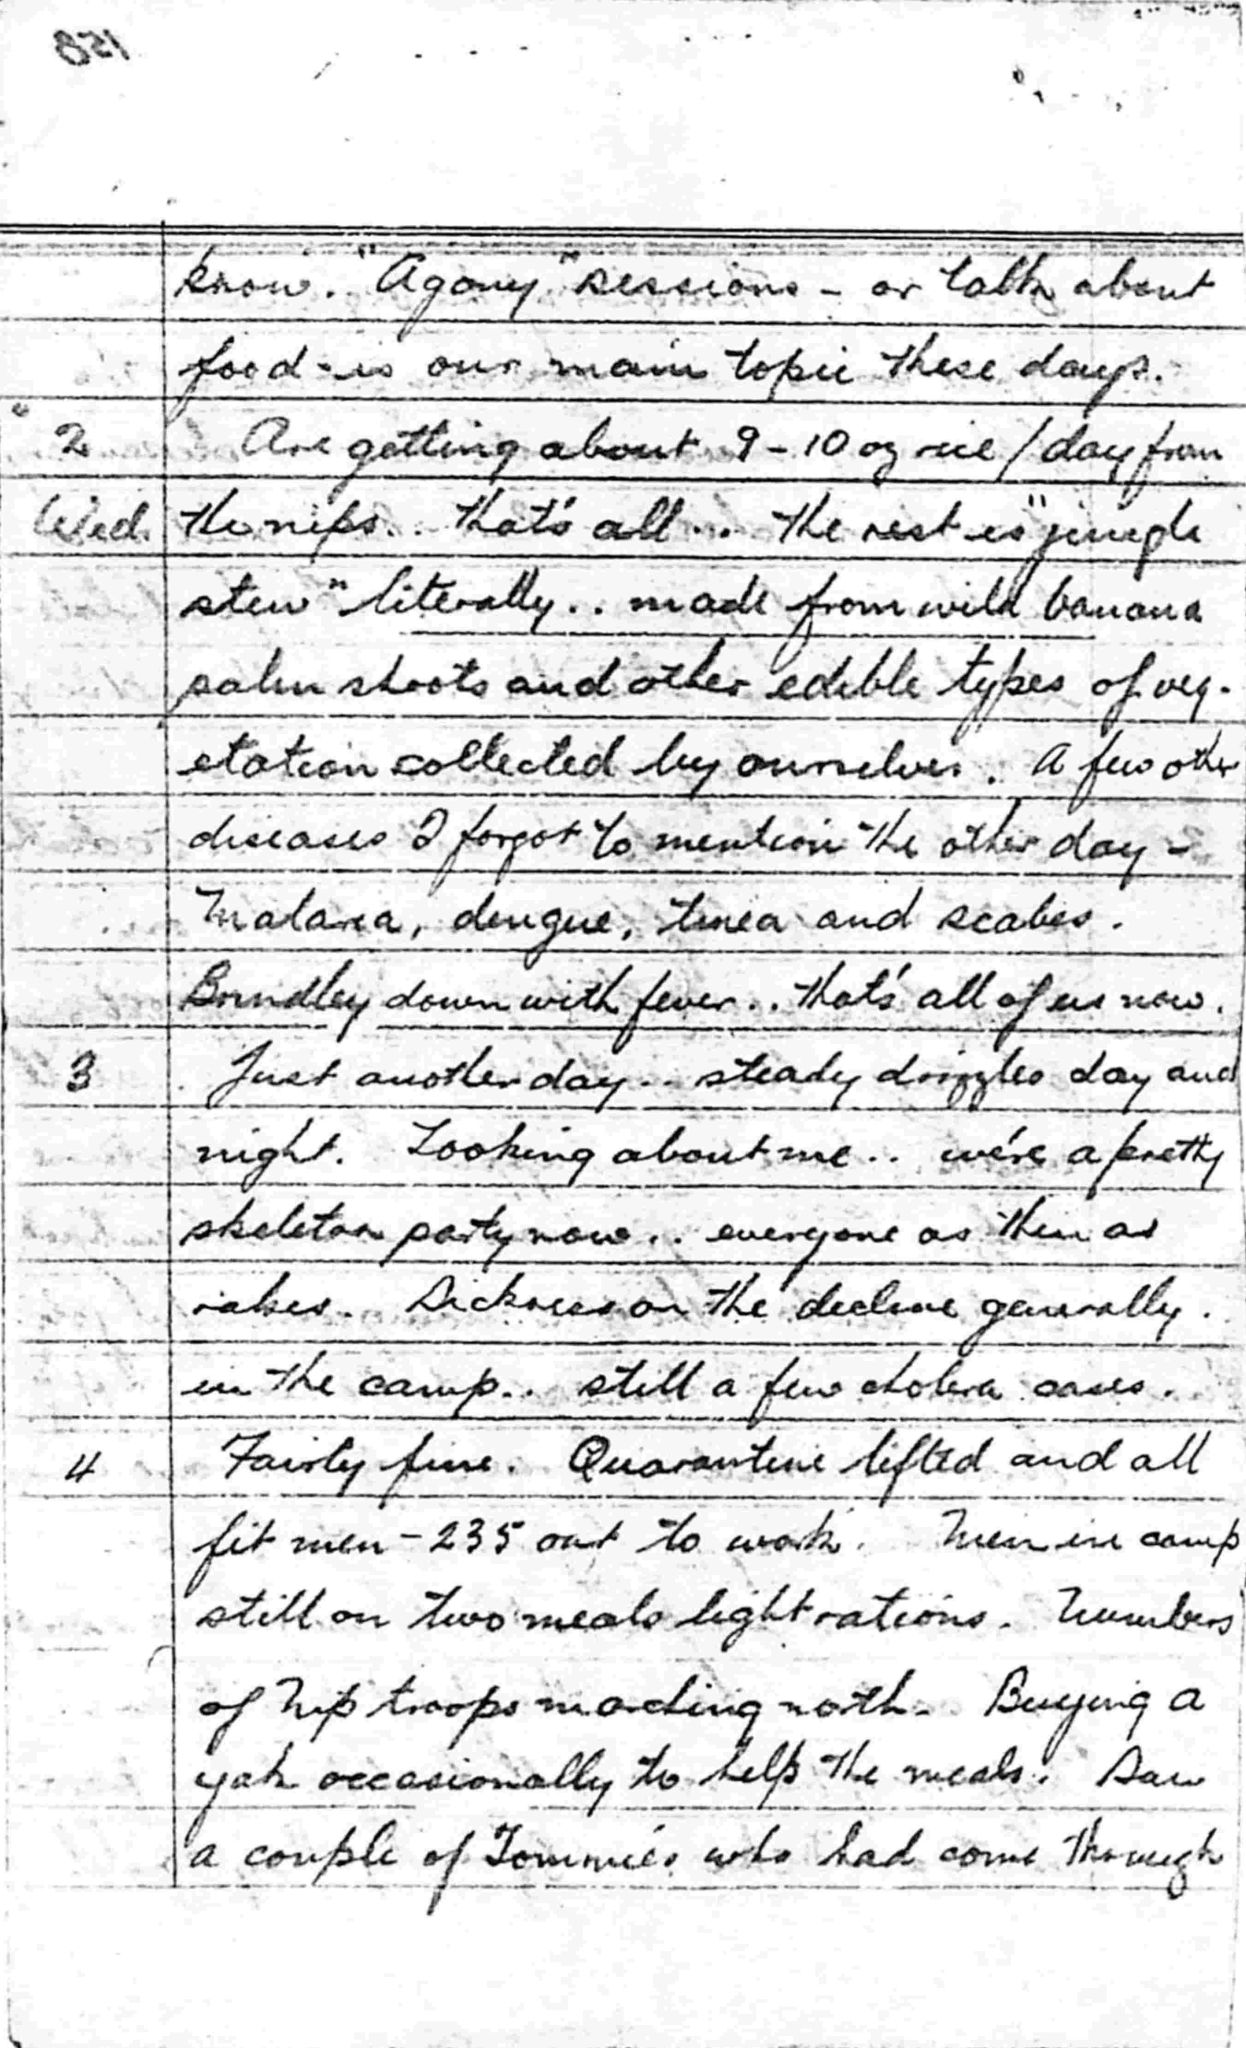 158
know. "Agony" sessions - or talk about
food - is our main topic these days.
" 2 Are getting about 9-10 oz rice / day from
Wed. the nips.. that's all... the rest is "jungle
stew" literally.. made from wild banana
palm shoots and other edible types of veg-
etation collected by ourselves. A few other
diseases I forgot to mention the other day -
Malaria, dengue, tinea and scabes.
Brindley down with fever.. that's all of us now.
3 Just another day.. steady drizzles day and
night. Looking about me.. we're a pretty
skeleton party now.. everyone as thin as
rakes. Sickness on the decline generally.
in the camp.. still a few cholera cases.
4 Fairly fine. Quarantine lifted and all
fit men - 235 out to work. Men in camp
still on two meals light rations. Numbers
of Nip troops marching north. Buying a
yak occasionally to help the meals. Saw
a couple of Tommies who had come through